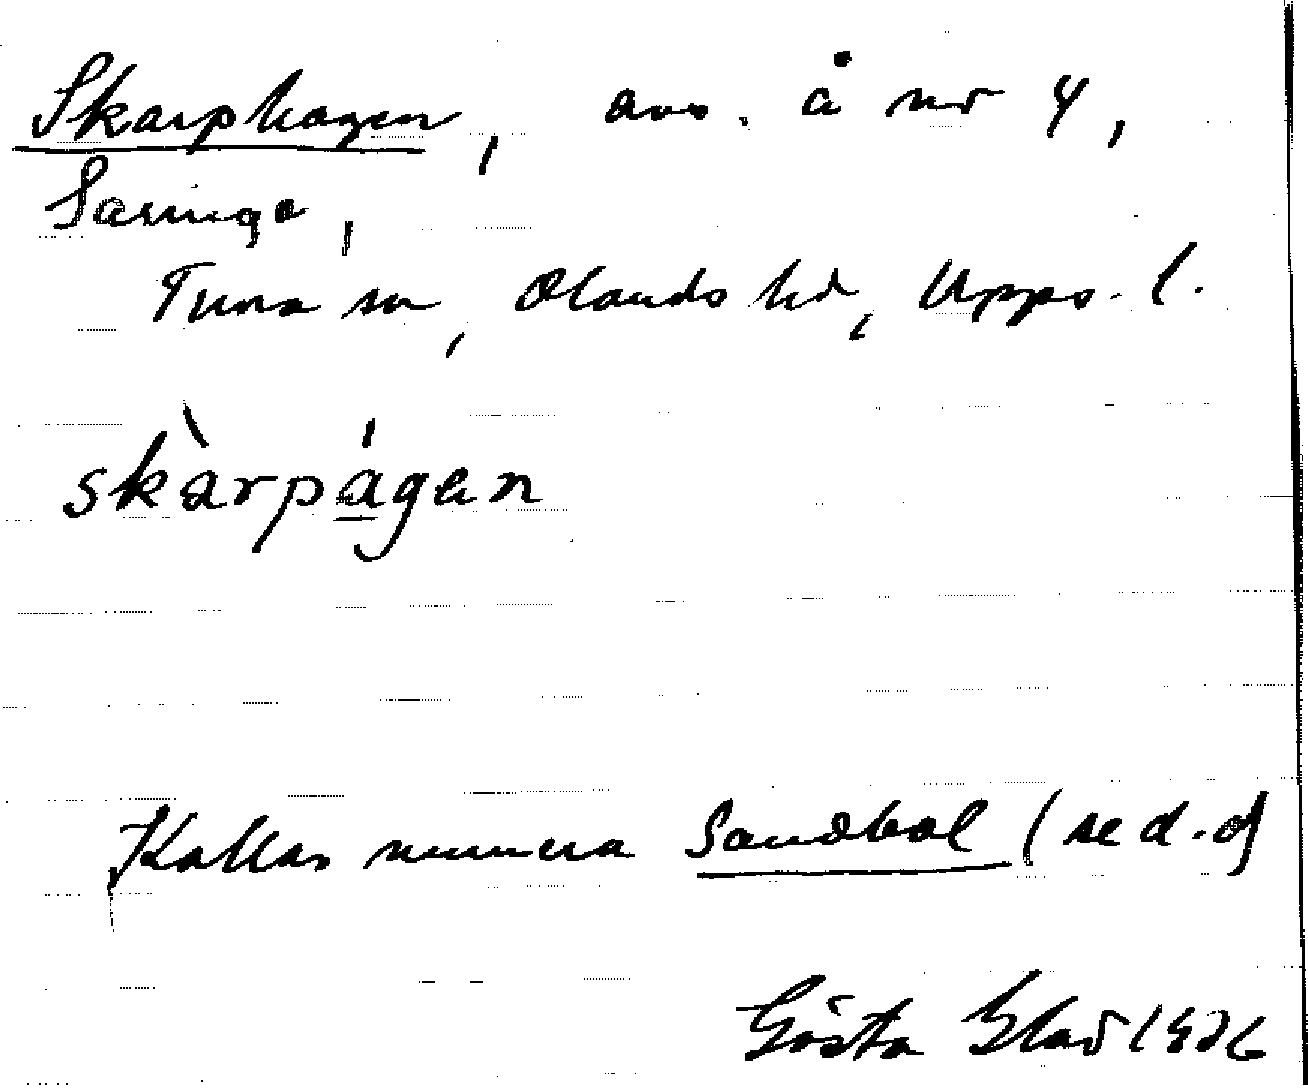 Skarphagen, avs. å nr 4,
Saringe,
Tuna sn, Olands hd, Upps. l.
skàrpágen
Kallas numera Sandbol (se d.o)
Gösta Elad 1926